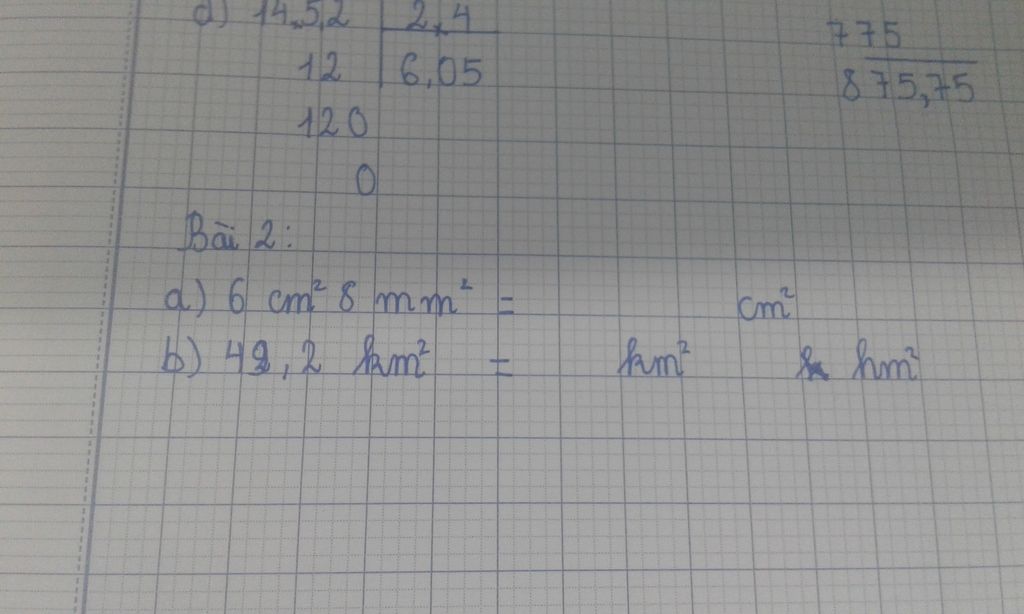 d) 14,5,2 | 2,4
12 | 6,05
120
0
775
875,75
Bài 2:
a) 6 cm² 8 mm² = cm²
b) 42,2 km² = km² hm²